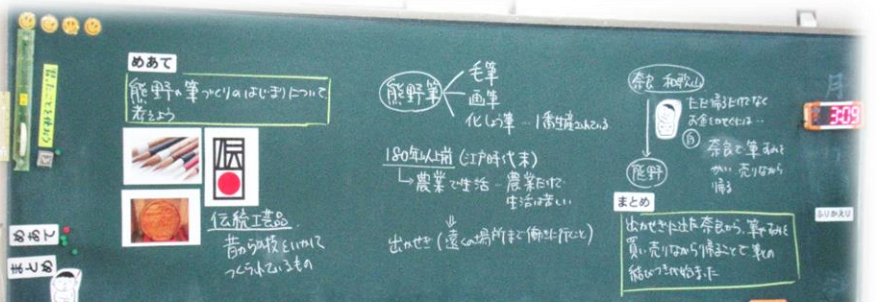 めあて
熊野の筆づくりのはじまりについて
考えよう
伝
伝統工芸品
昔からの技をいかして
つくられているもの
熊野筆
毛筆
画筆
化しょう筆…1番生産されている
180年以上前(江戸時代末)
農業で生活…農業だけで
生活は苦しい
出かせぎ(遠くの場所まで働きに行くこと)
奈良 和歌山
ただ帰るだけでなく
お金をかせぐには…
自
奈良で筆やすみを
かい、売りながら
帰る
熊野
まとめ
出かせぎに出た奈良から、筆やすみを
買い、売りながら帰ることで筆との
結びつきが始まった
3:09
ふりかえり
めあて
まとめ